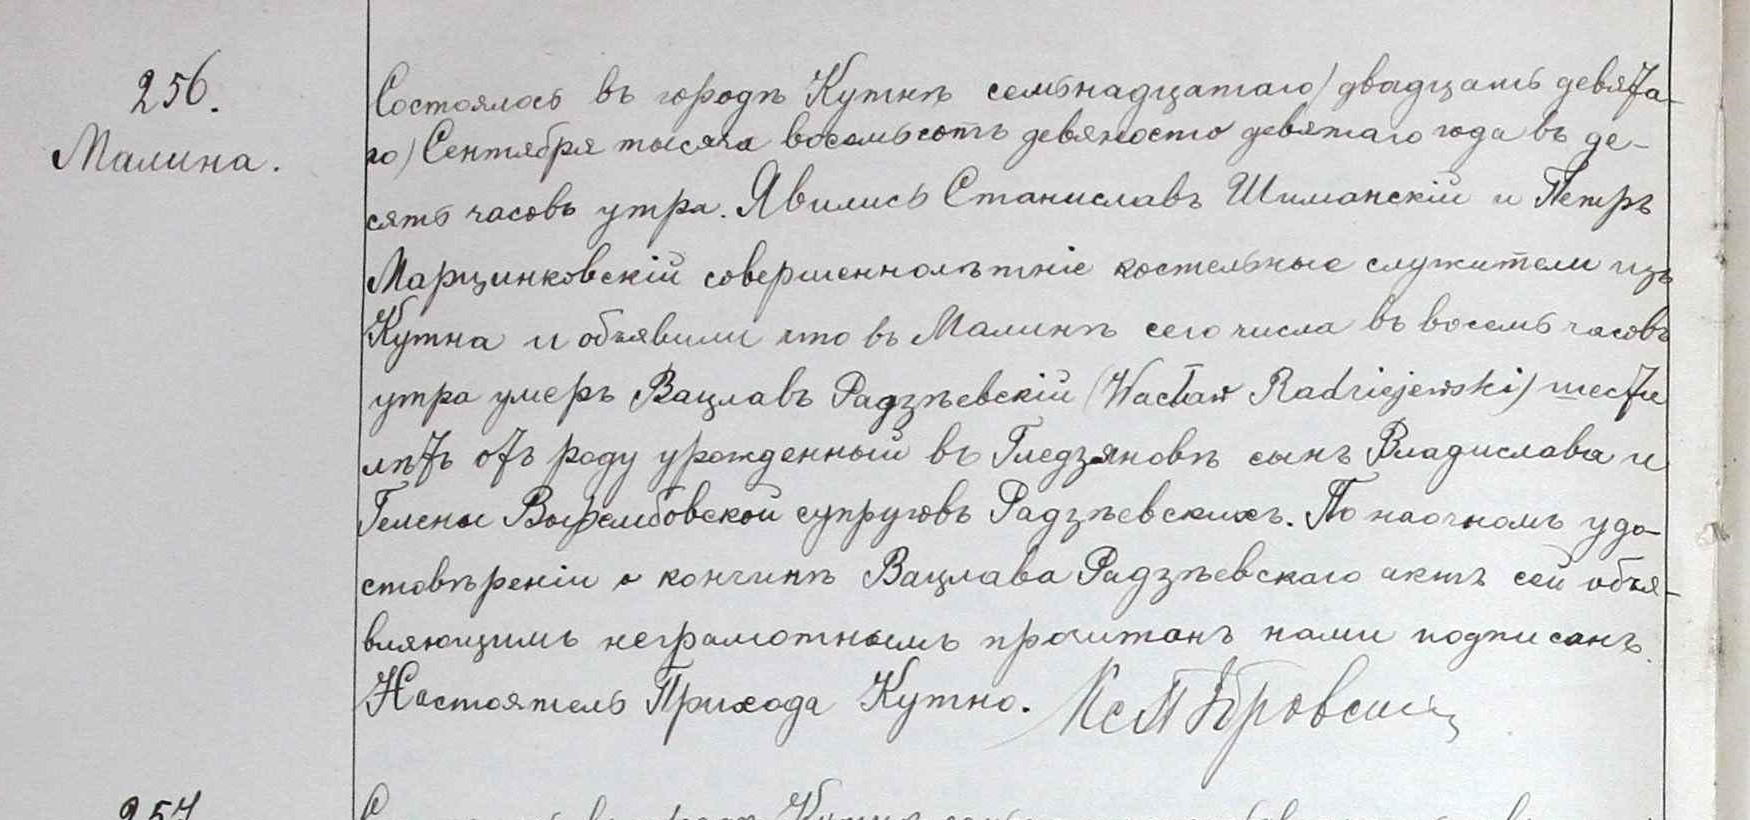 256.
Малина.
Состоялось въ городѣ Кутнѣ семьнадцатаго / двадцать девята-
го) Сентября тысяча восемьсотъ девяносто девятаго года въ де-
сять часовъ утра. Явились Станиславъ Шиманскій и Петръ
Марцинковскій совершеннолѣтніе костельные служители изъ
Кутна и объявили что въ Малинѣ сего числа въ восемь часовъ
утра умеръ Вацлавъ Радзѣевскій (Wacław Radziejewski) шести
лѣтъ отъ роду урожденный въ Гледзяновѣ сынъ Владислава и
Гелены супруговъ Радзѣевскихъ. По наочномъ удо-
стовѣреніи о кончинѣ Вацлава Радзѣевскаго актъ сей объя-
вляющимъ неграмотнымъ прочитанъ нами подписанъ.
Настоятель Прихода Кутно.
257